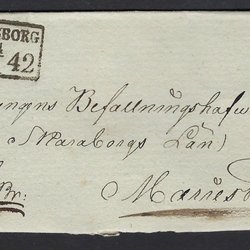 SBORG
42
ungns Befallningshafv
Skaraborgs Län)
Br:
Maries